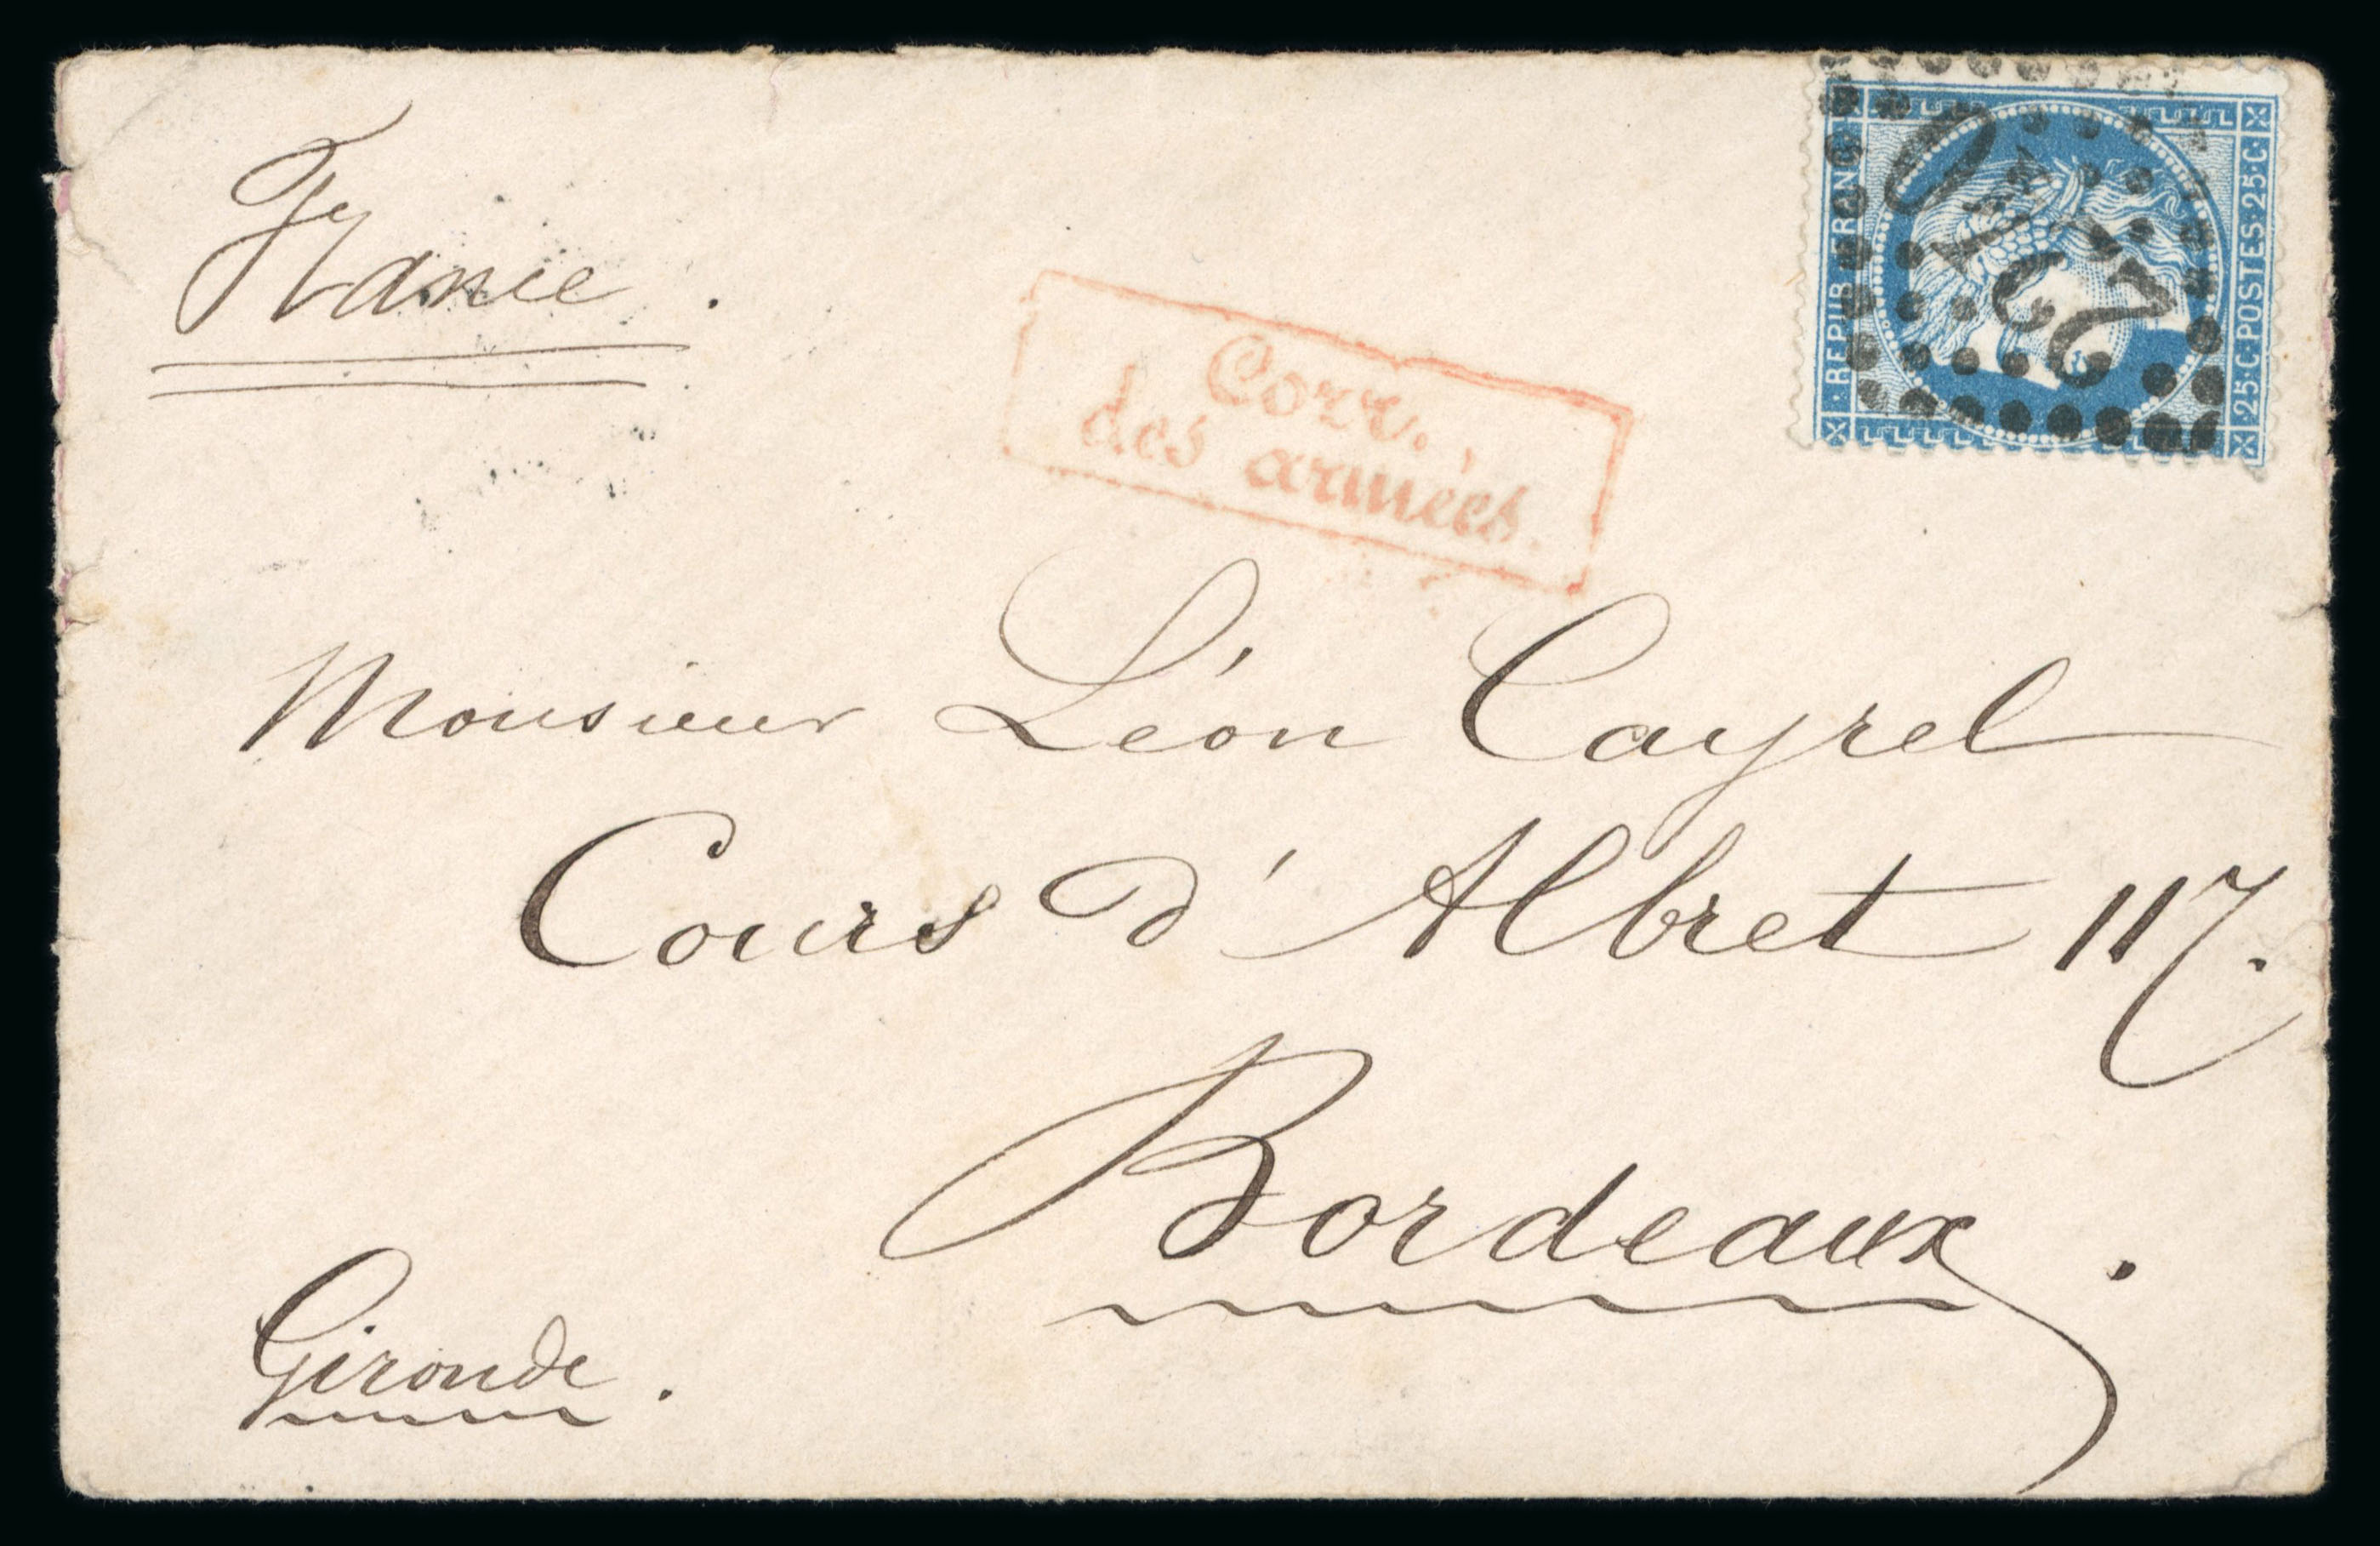 France.
REPUB FRANC
25·C·POSTES·25·C
2240
Corr.
des armées.
Monsieur Léon Cayrel
Cours d'Albret 117.
Bordeaux.
Gironde.